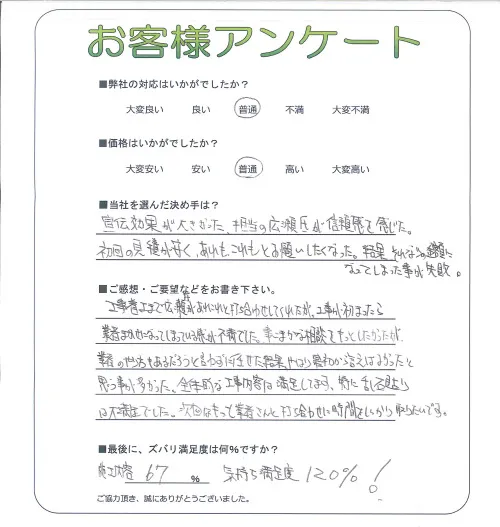 お客様アンケート
■弊社の対応はいかがでしたか?
大変良い 良い 普通 不満 大変不満
■価格はいかがでしたか?
大変安い 安い 普通 高い 大変高い
■当社を選んだ決め手は?
宣伝効果が大きかった、担当の広瀬氏が信頼感を感じた。
初回の見積が安く、あれもこれもとお願いしたくなった。結果それなりの金額に
なってしまった事が失敗。
■ご感想・ご要望などをお書き下さい。
工事着工まで広瀬氏があれこれと打ち合わせしてくれたが、工事が初まったら
業者まかせになってしまっている感が不満でした。事こまかな相談をもっとしたかったが、
業者のやり方もあるだろうと言わずに任せた結果、やはり最初から言えばよかったと
思う事が多かった。全体的な工事内容は満足してます。特に
は不満足でした。次回はもっと業者さんと打ち合わせに時間をしっかり取りたいです。
■最後に、ズバリ満足度は何%ですか?
施工内容 67 % 気持ち満足度 120%!
ご協力頂き、誠にありがとうございました。